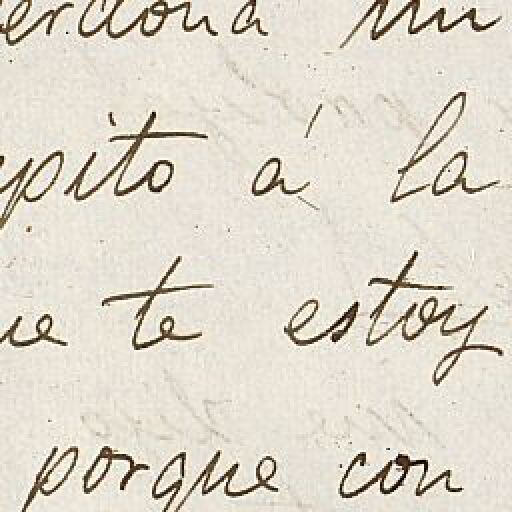 perdona mi
pepito á la
que te estoy
porque con